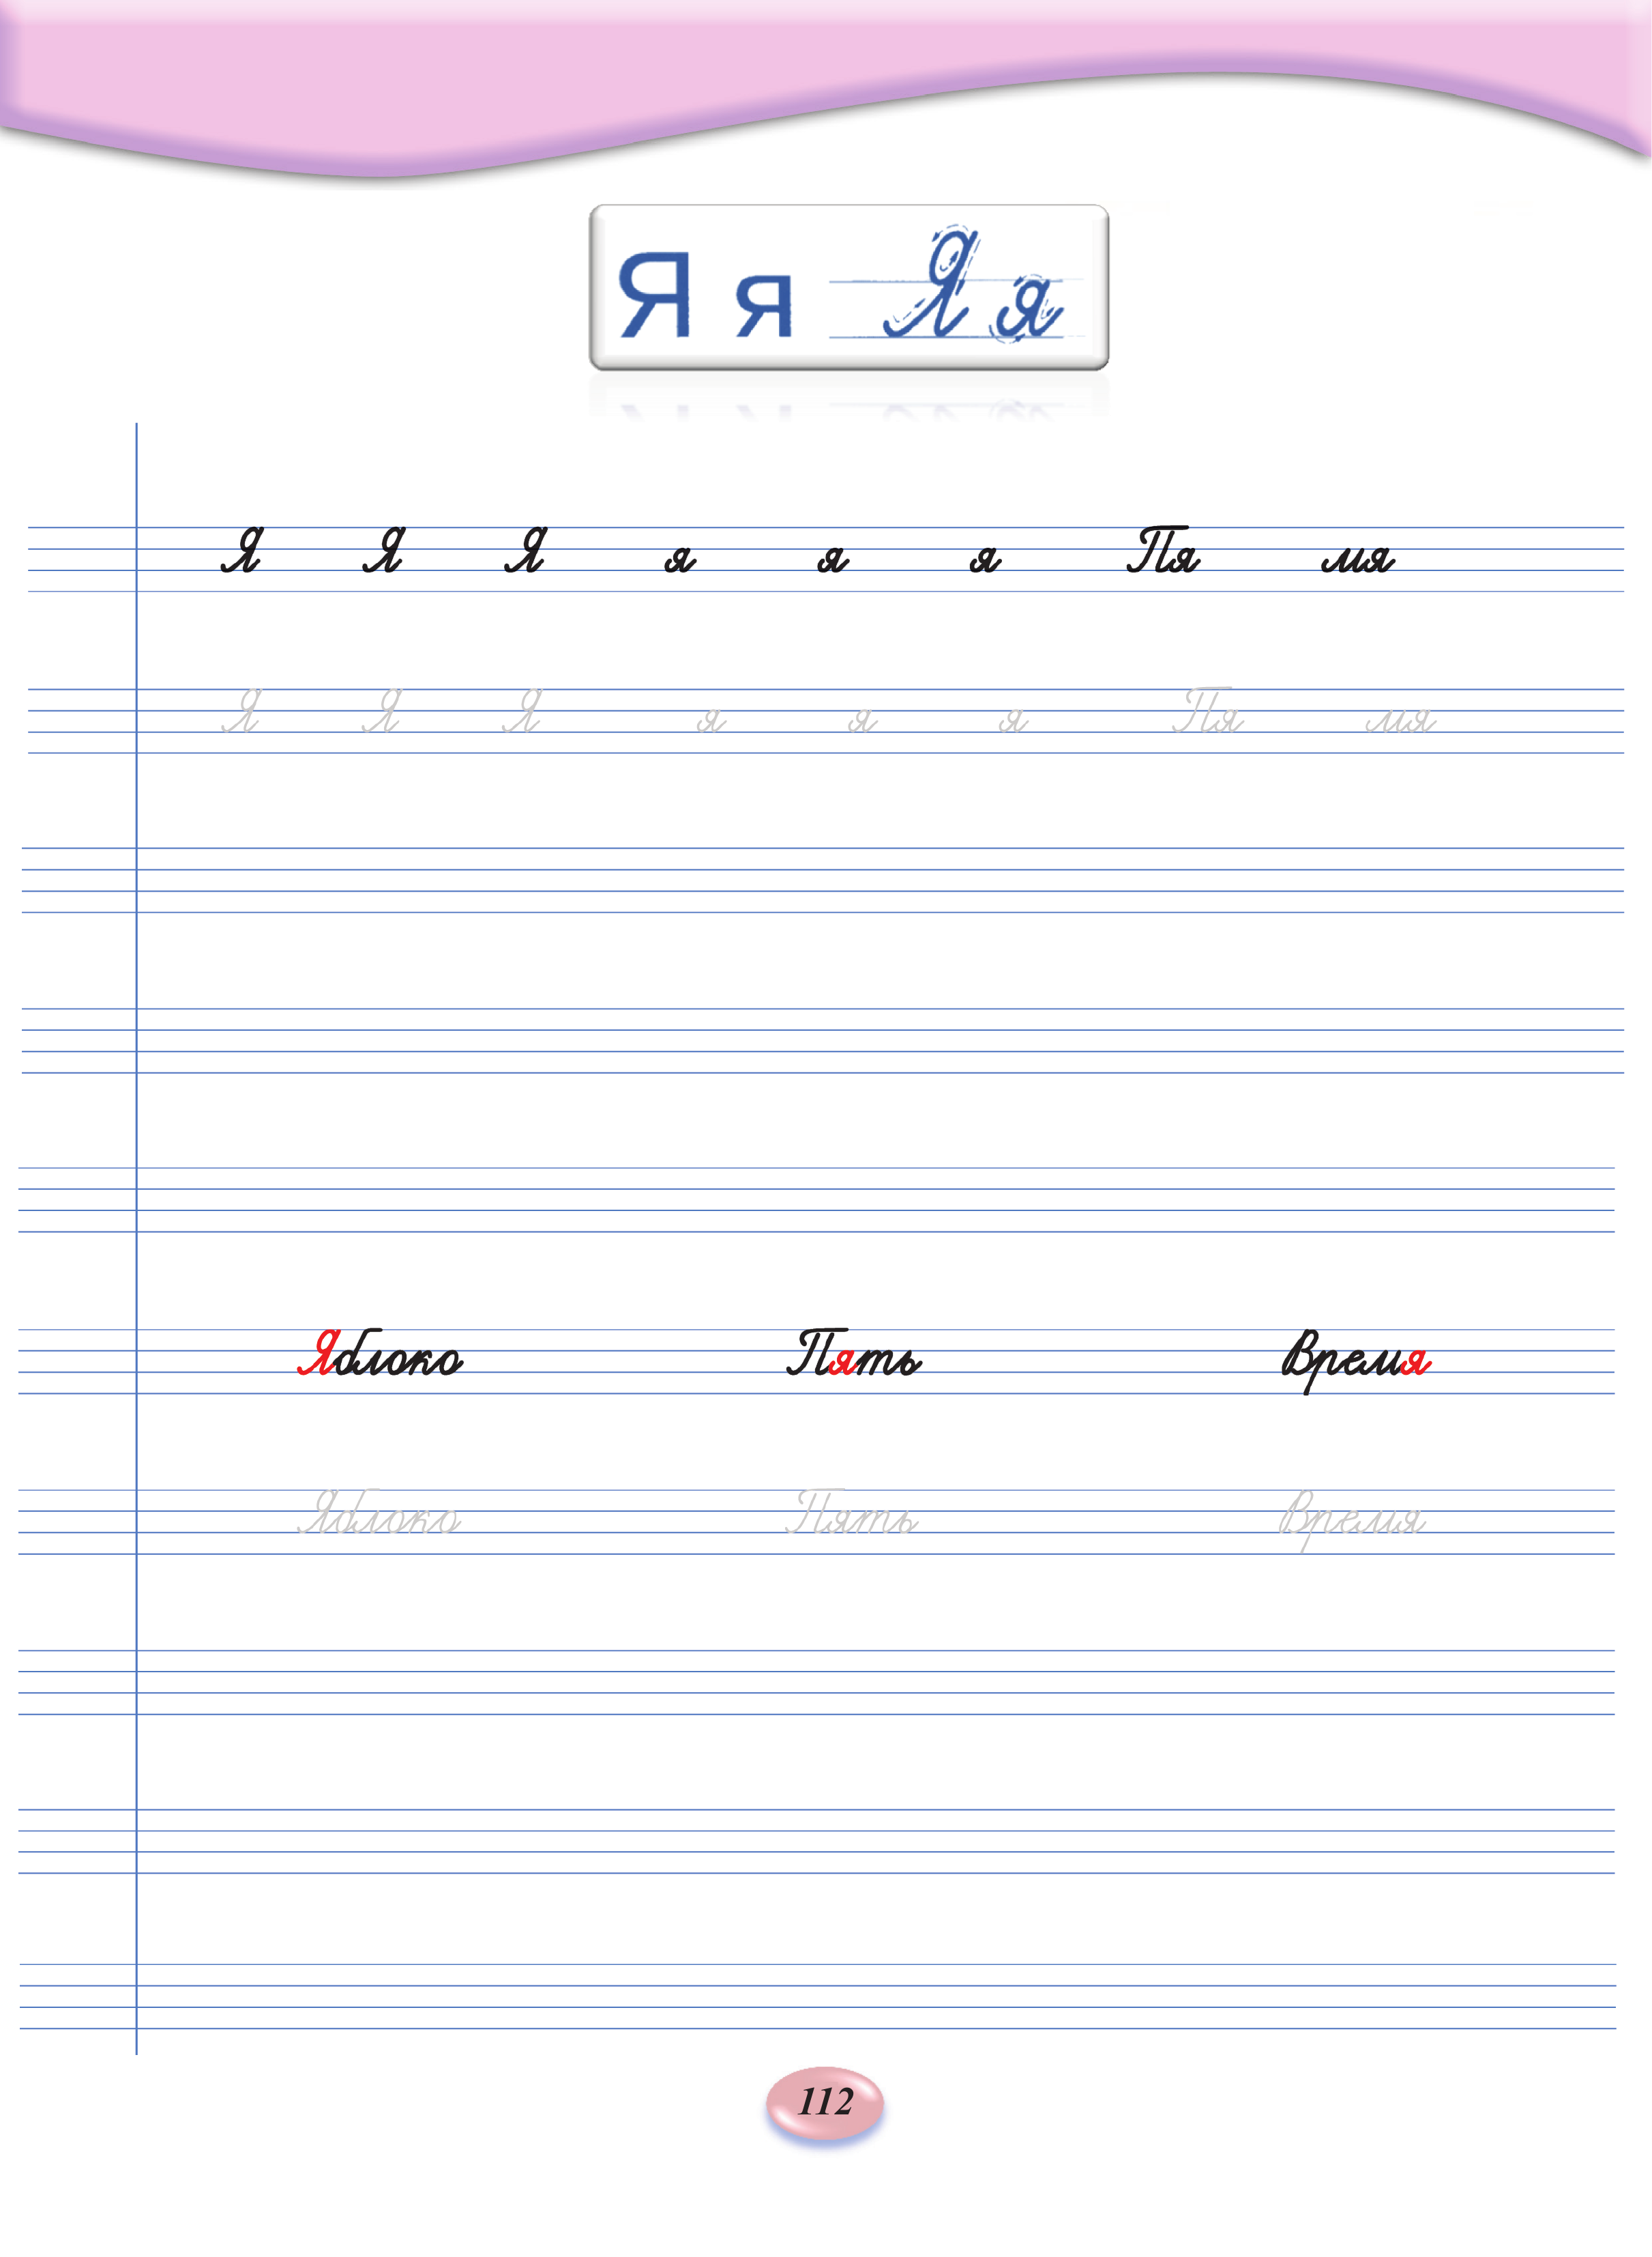 Я я Я я
Я Я Я я я я Пя мя
Я Я Я я я я Пя мя
Яблоко Пять Время
Яблоко Пять Время
112